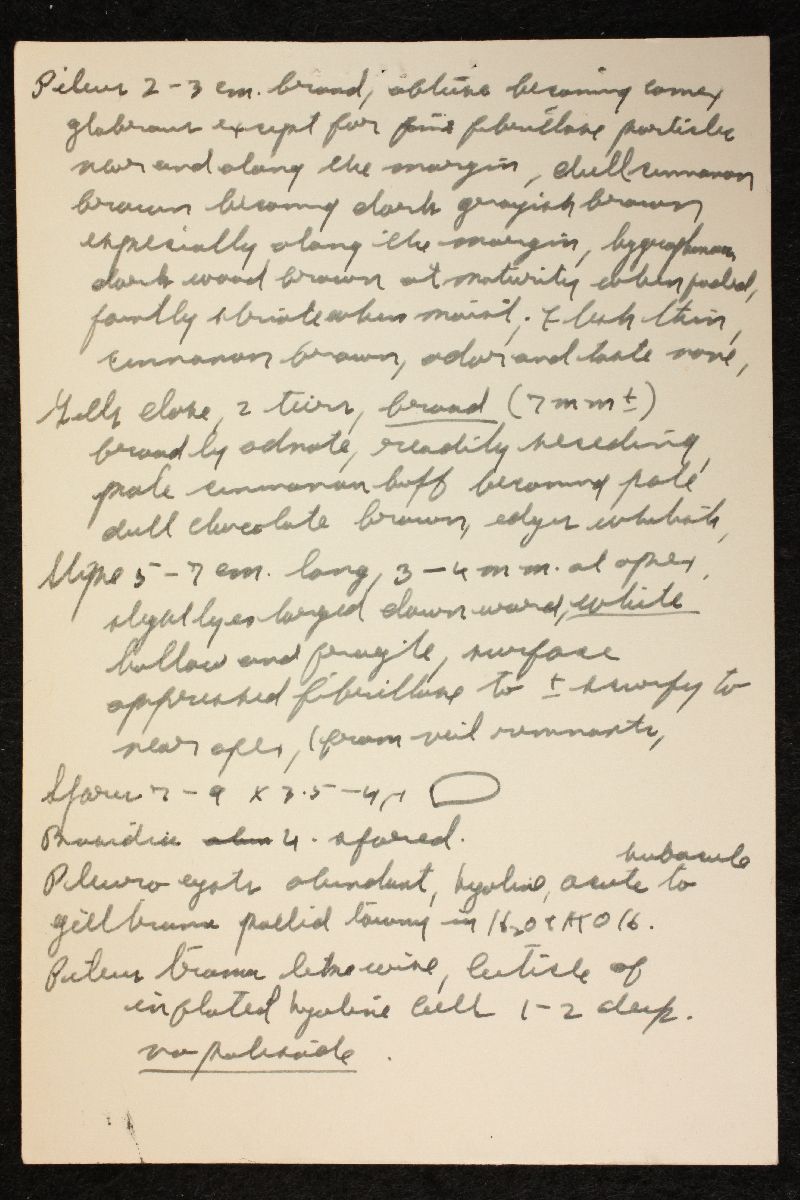 Pileus 2-3 cm. broad, obtuse becoming convex
glabrous except for fine fibrillose particles
near and along the margin, dull cinnamon
brown becoming dark grayish brown
especially along the margin, hygrophanous,
dark wood brown at maturity when faded,
faintly striate when moist; Flesh thin,
cinnamon brown, odor and taste none,
Gills close, 2 tiers, broad (7 mm ±)
broadly adnate, readily seceding,
pale cinnamon buff becoming pale
dull chocolate brown, edges whitish,
Stipe 5-7 cm. long, 3-4 mm. at apex,
slightly enlarged downward, white
hollow and fragile, surface
appressed fibrillose to ± scurfy to
near apex, (from veil remnants,
Spores 7-9 x 3.5-4 μ
Basidia 4-spored.
subacute
Pleurocysts abundant, hyaline, acute to
gill trama pallid tawny in H2O & KOH.
Pileus trama likewise, cuticle of
inflated hyaline cells 1-2 deep.
no palisade.